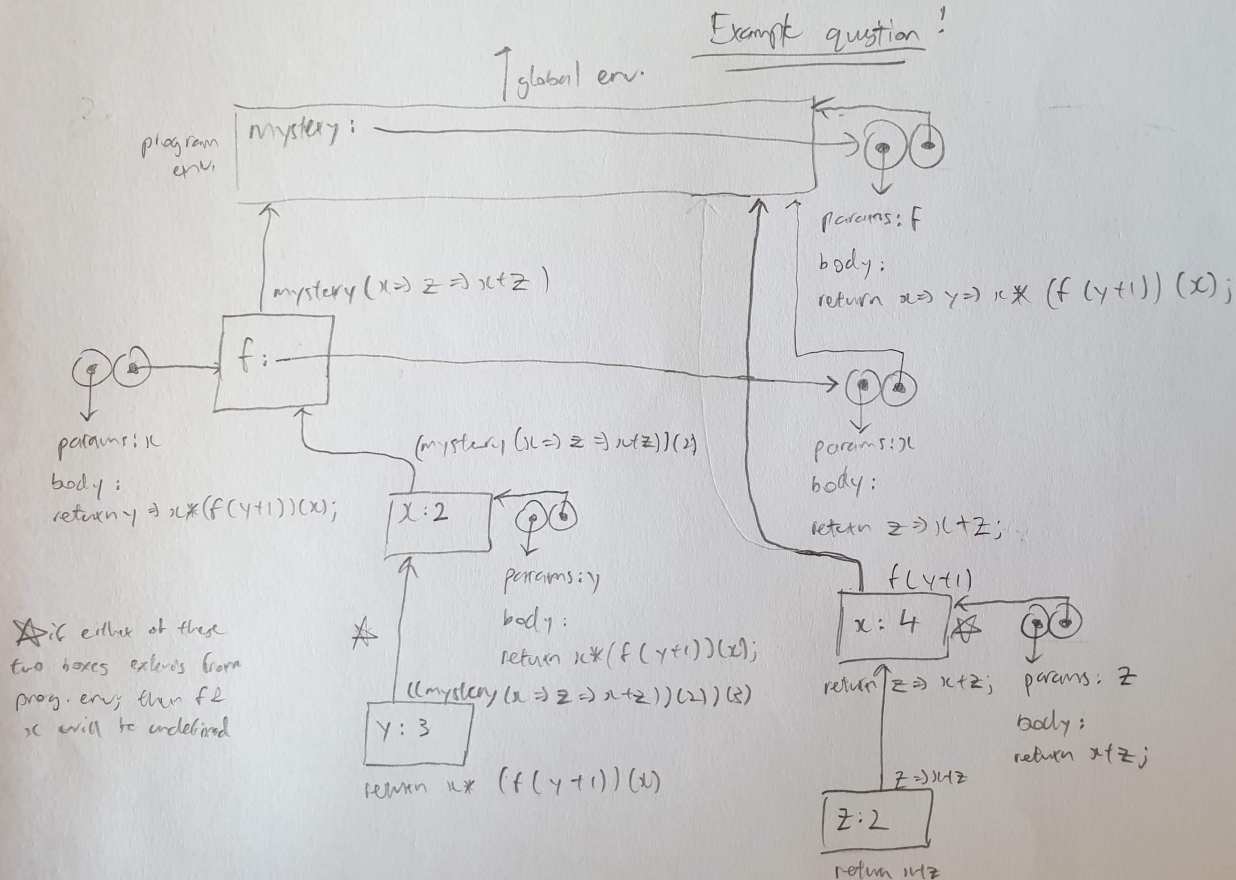 Example qustion!
global env.
program
env.
mystery:
params: f
body:
return x => y => x * (f(y+1))(x);
mystery(x => z => x+z)
f:
params: x
body:
return y => x*(f(y+1))(x);
(mystery(x => z => x+z))(2)
params: x
body:
return z => x+z;
x: 2
params: y
body:
return x*(f(y+1))(x);
f(y+1)
x: 4
return z => x+z;
params: z
body:
return x+z;
if either of these
two boxes extends from
prog. env, then f &
x will be undefined
((mystery(x => z => x+z))(2))(3)
y: 3
return x* (f(y+1))(x)
z => x+z
z: 2
return x+z